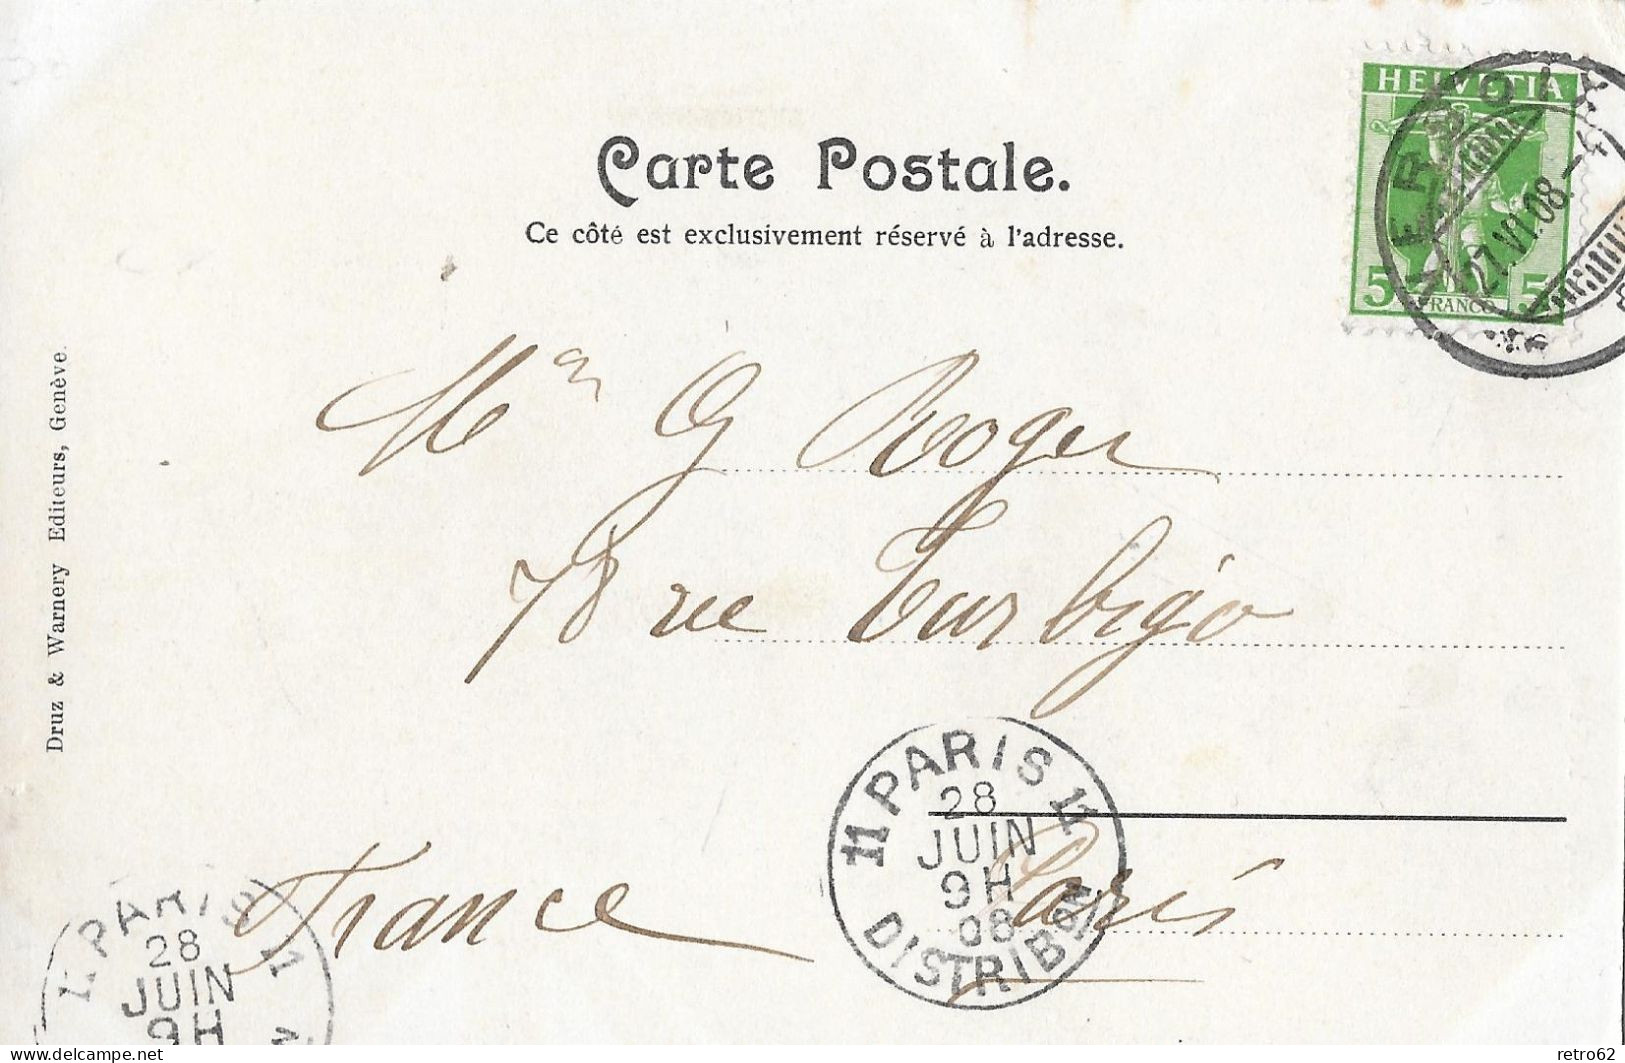 HELVETIA
VERSOIX
27.VI.08.-4
5 FRANCO 5
Carte Postale.
Ce côté est exclusivement réservé à l'adresse.
Druz & Warnery Editeurs, Genève.
G Roger
78 rue Turbigo
Paris
France
11 PARIS 11
28
JUIN
9H
08
DISTRIBON
PARIS
28
JUIN
9H
delcampe.net
retro62